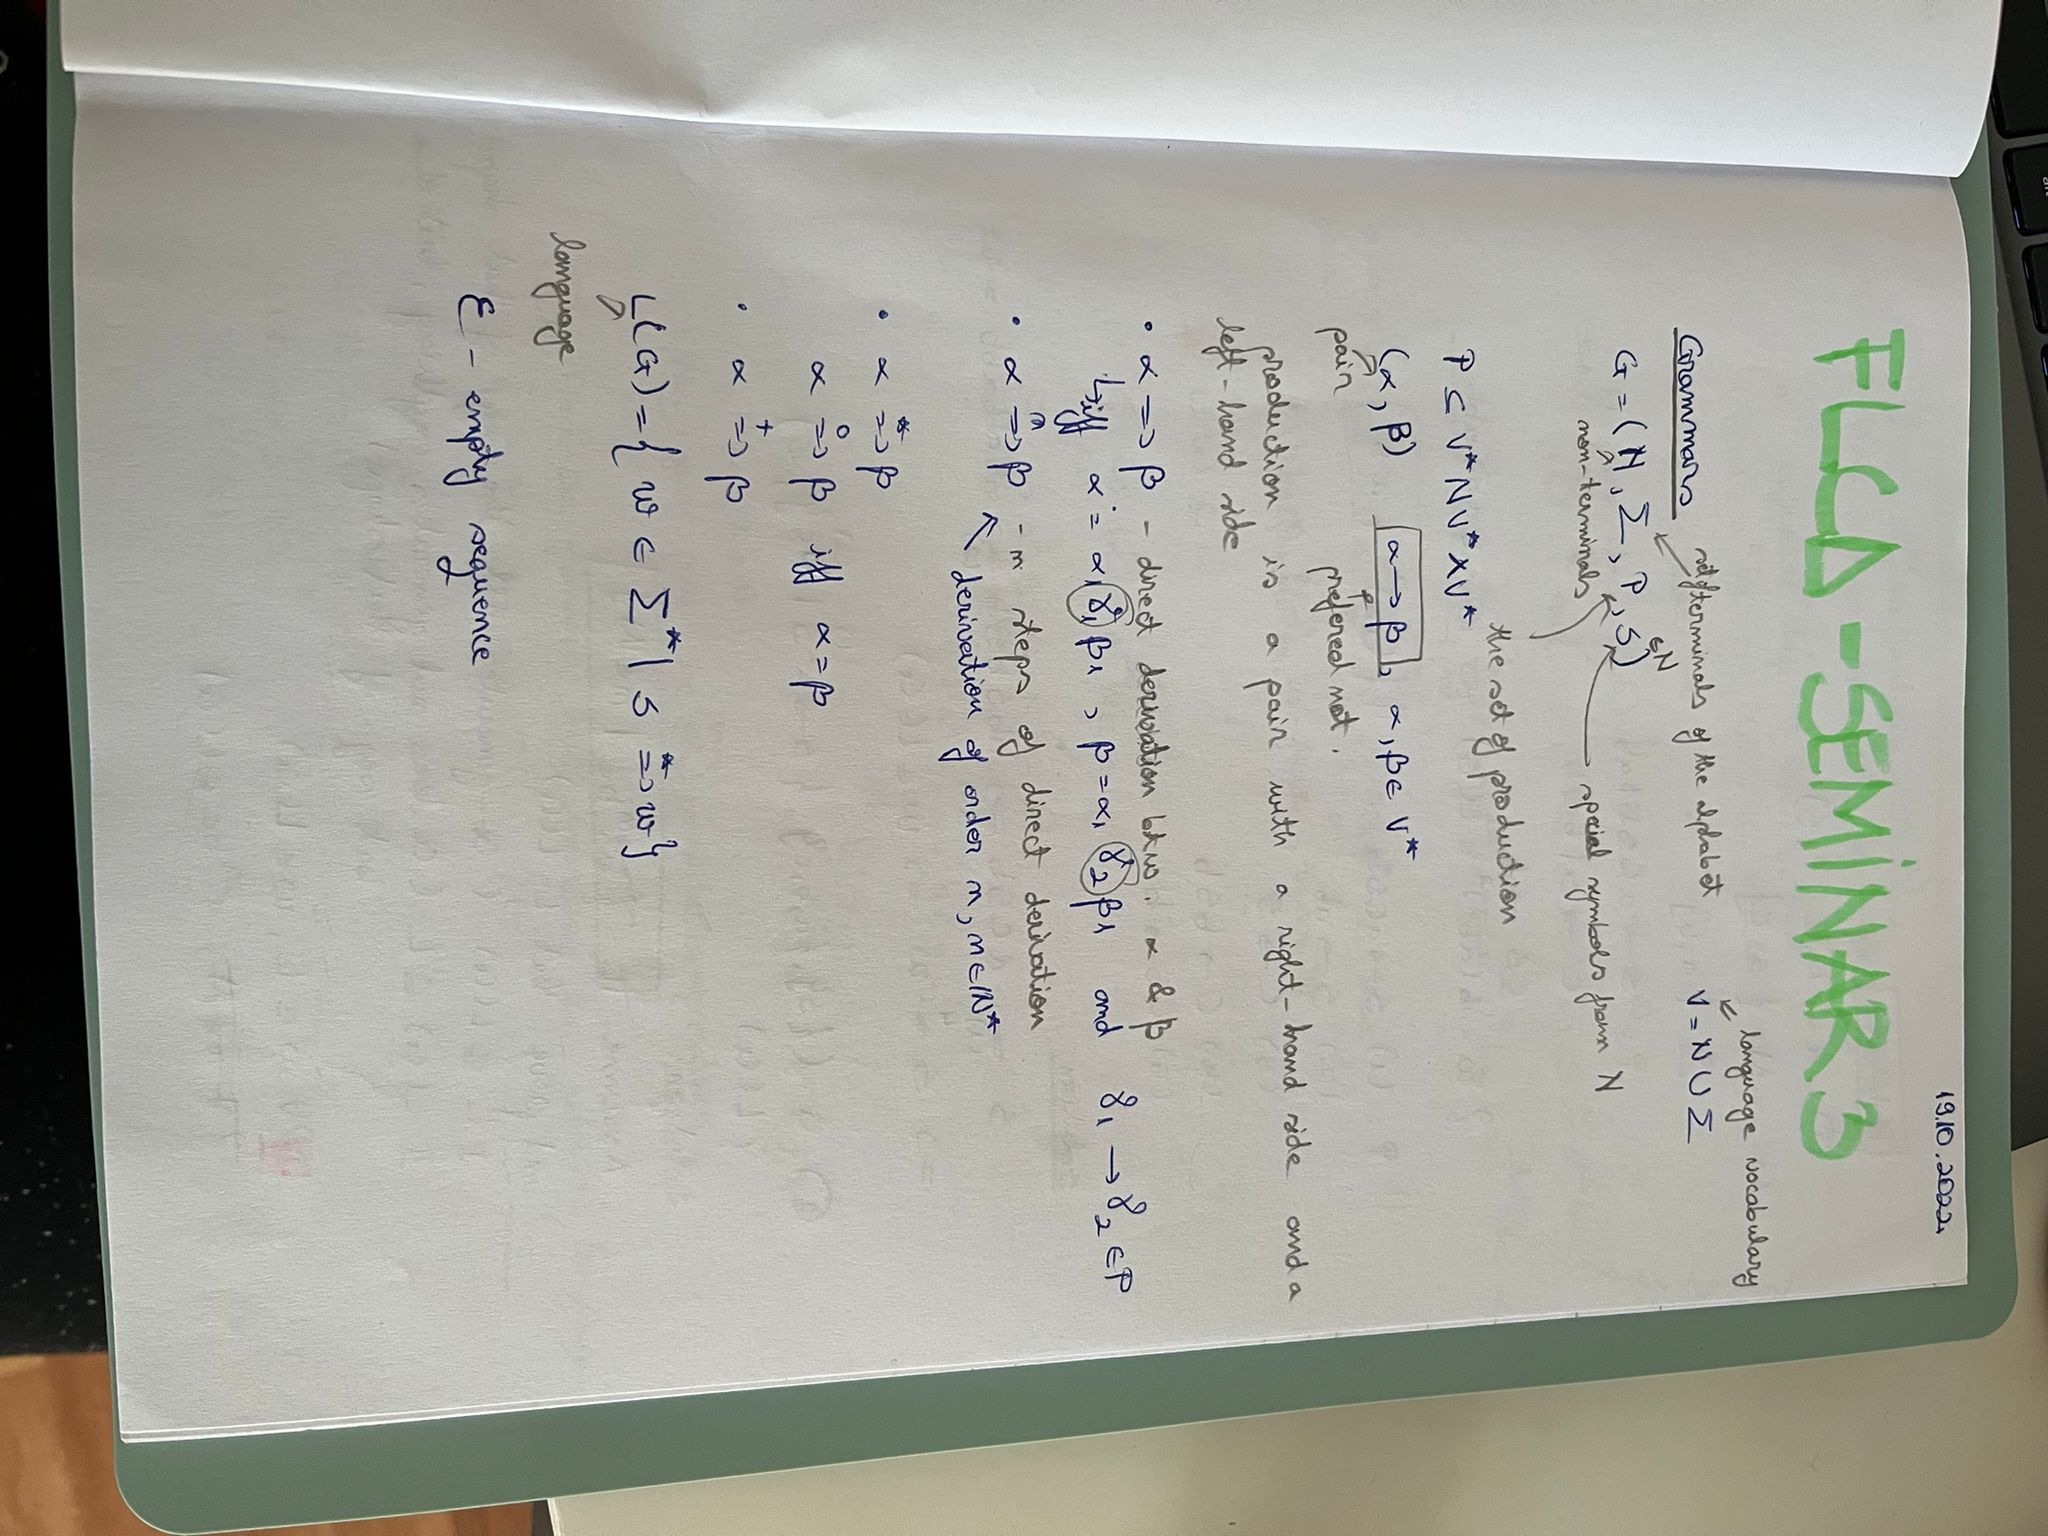 19.10.2022
FLCD - SEMINAR 3
language vocabulary
Grammars set of terminals of the alphabet V = N ∪ Σ
G = (N, Σ, P, S) ∈N
non-terminals special symbols from N
the set of production
P ⊆ V* N V* X V*
(α, β) α → β, α, β ∈ V*
pair prefered not.
production is a pair with a right-hand side and a
left-hand side
• α => β - direct derivation btw. α & β
↳ iff α = α₁ γ₁ β₁, β = α₁ γ₂ β₁ and γ₁ → γ₂ ∈ P
• α =ⁿ=> β - n steps of direct derivation
derivation of order n, n ∈ ℕ*
• α =*=> β
α =0=> β iff α = β
• α =+=> β
L(G) = { w ∈ Σ* | S =*=> w }
language
ε - empty sequence